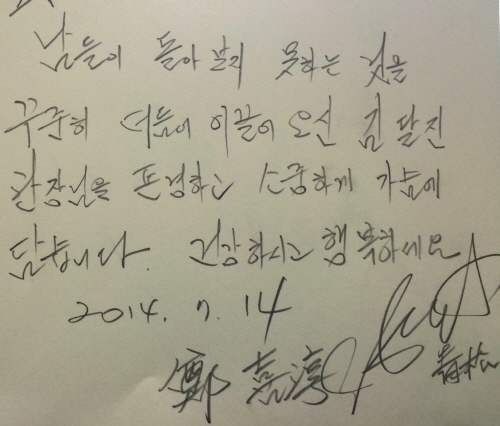 남들이 돌아 보지 못하는 것을
꾸준히 더듬어 이끌어 오신 김달진
관장님을 존경하고 소중하게 가슴에
담습니다. 건강하시고 행복하세요
2014. 7. 14
鄭 嘉 淳
青松